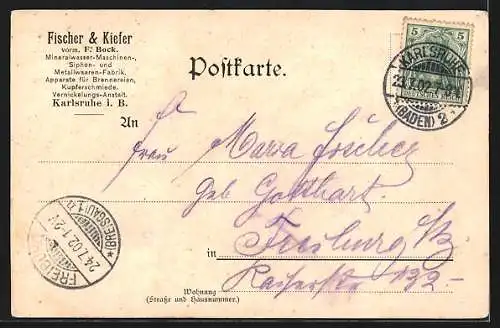 Fischer & Kiefer
vorm. F. Bock.
Mineralwasser-Maschinen-,
Siphon- und
Metallwaaren-Fabrik.
Apparate für Brennereien,
Kupferschmiede.
Vernickelungs-Anstalt.
Karlsruhe i. B.
5 5
KARLSRUHE
(BADEN) 2
Postkarte.
An
Frau Maria
geb. Gotthart.
in Freiburg i/B.
Kaiserstr 132
FREIBURG (BREISGAU) 1.
24.7.02.1-2V
Wohnung
(Straße und Hausnummer.)